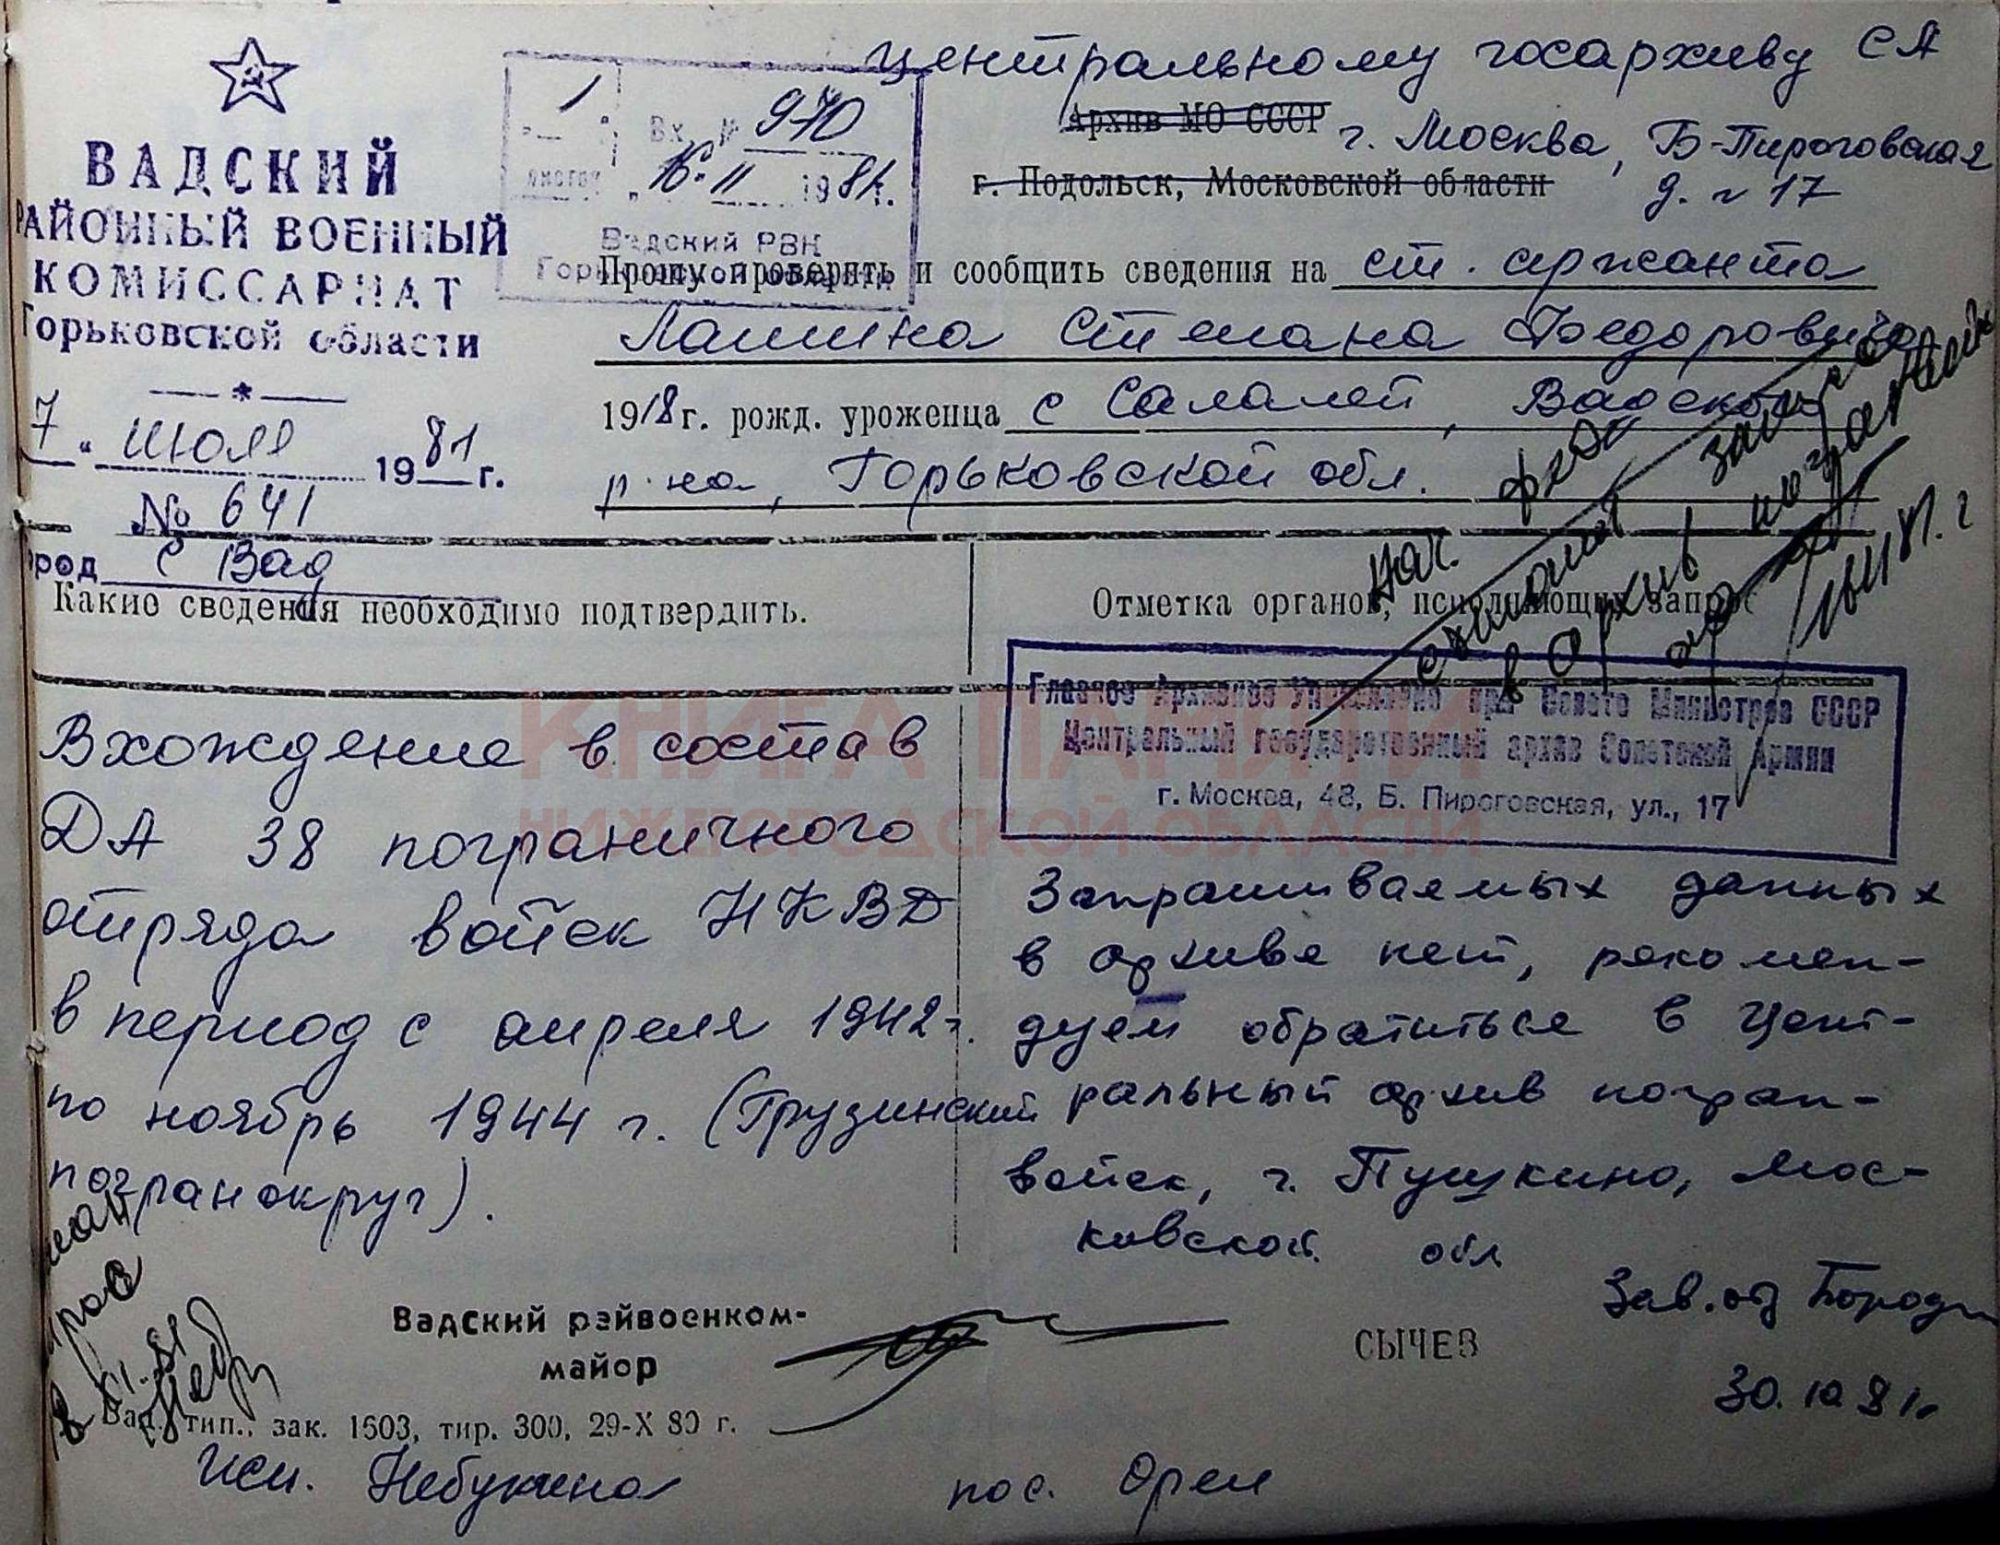 Центральному госархиву СА
Архив МО СССР г. Москва, Б-Пироговская
г. Подольск, Московской области д. 17
ВАДСКИЙ
РАЙОННЫЙ ВОЕННЫЙ
КОМИССАРИАТ
Горьковской области
7 " июля 1981 г.
№ 641
ород с Вад
1
листов
Вх. № 970
"16" 11 1981 г.
Вадский РВК
Горьковской области
Прошу проверить и сообщить сведения на ст. сержанта
Лашина Степана Федоровича
1918 г. рожд. уроженца с Салалей, Вадского
р-на, Горьковской обл.
Какие сведения необходимо подтвердить.
Отметка органов, исполняющих запрос
Нач. фхо
запрос
в архив погранвойск
16 11 81. г
Вхождение в состав
ДА 38 пограничного
отряда войск НКВД
в период с апреля 1942 г.
по ноябрь 1944 г. (Грузинский
погранокруг).
Главное Архивное Управление при Совете Министров СССР
Центральный государственный архив Советской Армии
г. Москва, 48, Б. Пироговская, ул., 17
Запрашиваемых данных
в архиве нет, рекомен-
дуем обратиться в Цент-
ральный архив погран-
войск, г. Пушкино, Мос-
ковской обл
Зав. от
30.10 81г.
КНИГА ПАМЯТИ
НИЖЕГОРОДСКОЙ ОБЛАСТИ
Вадский райвоенком-
майор
СЫЧЕВ
Вад. тип., зак. 1503, тир. 300, 29-X 80 г.
Исп. Небукина